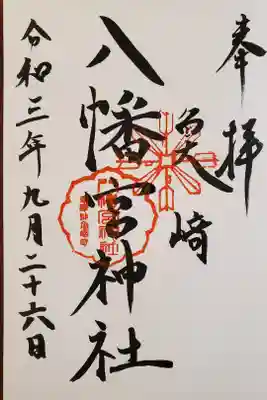 奉拝
魚崎
八幡宮神社
令和三年九月二十六日